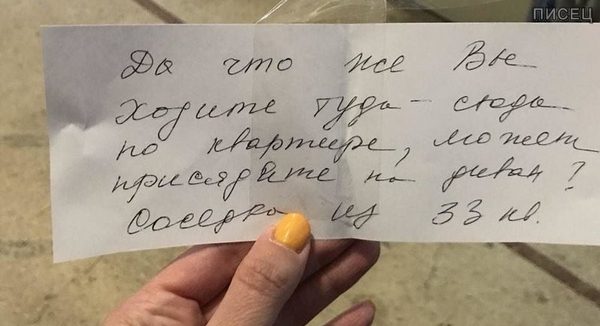 ПИСЕЦ
Да что же Вы
ходите туда-сюда
по квартире, может
присядете на диван?
Соседка из 33 кв.